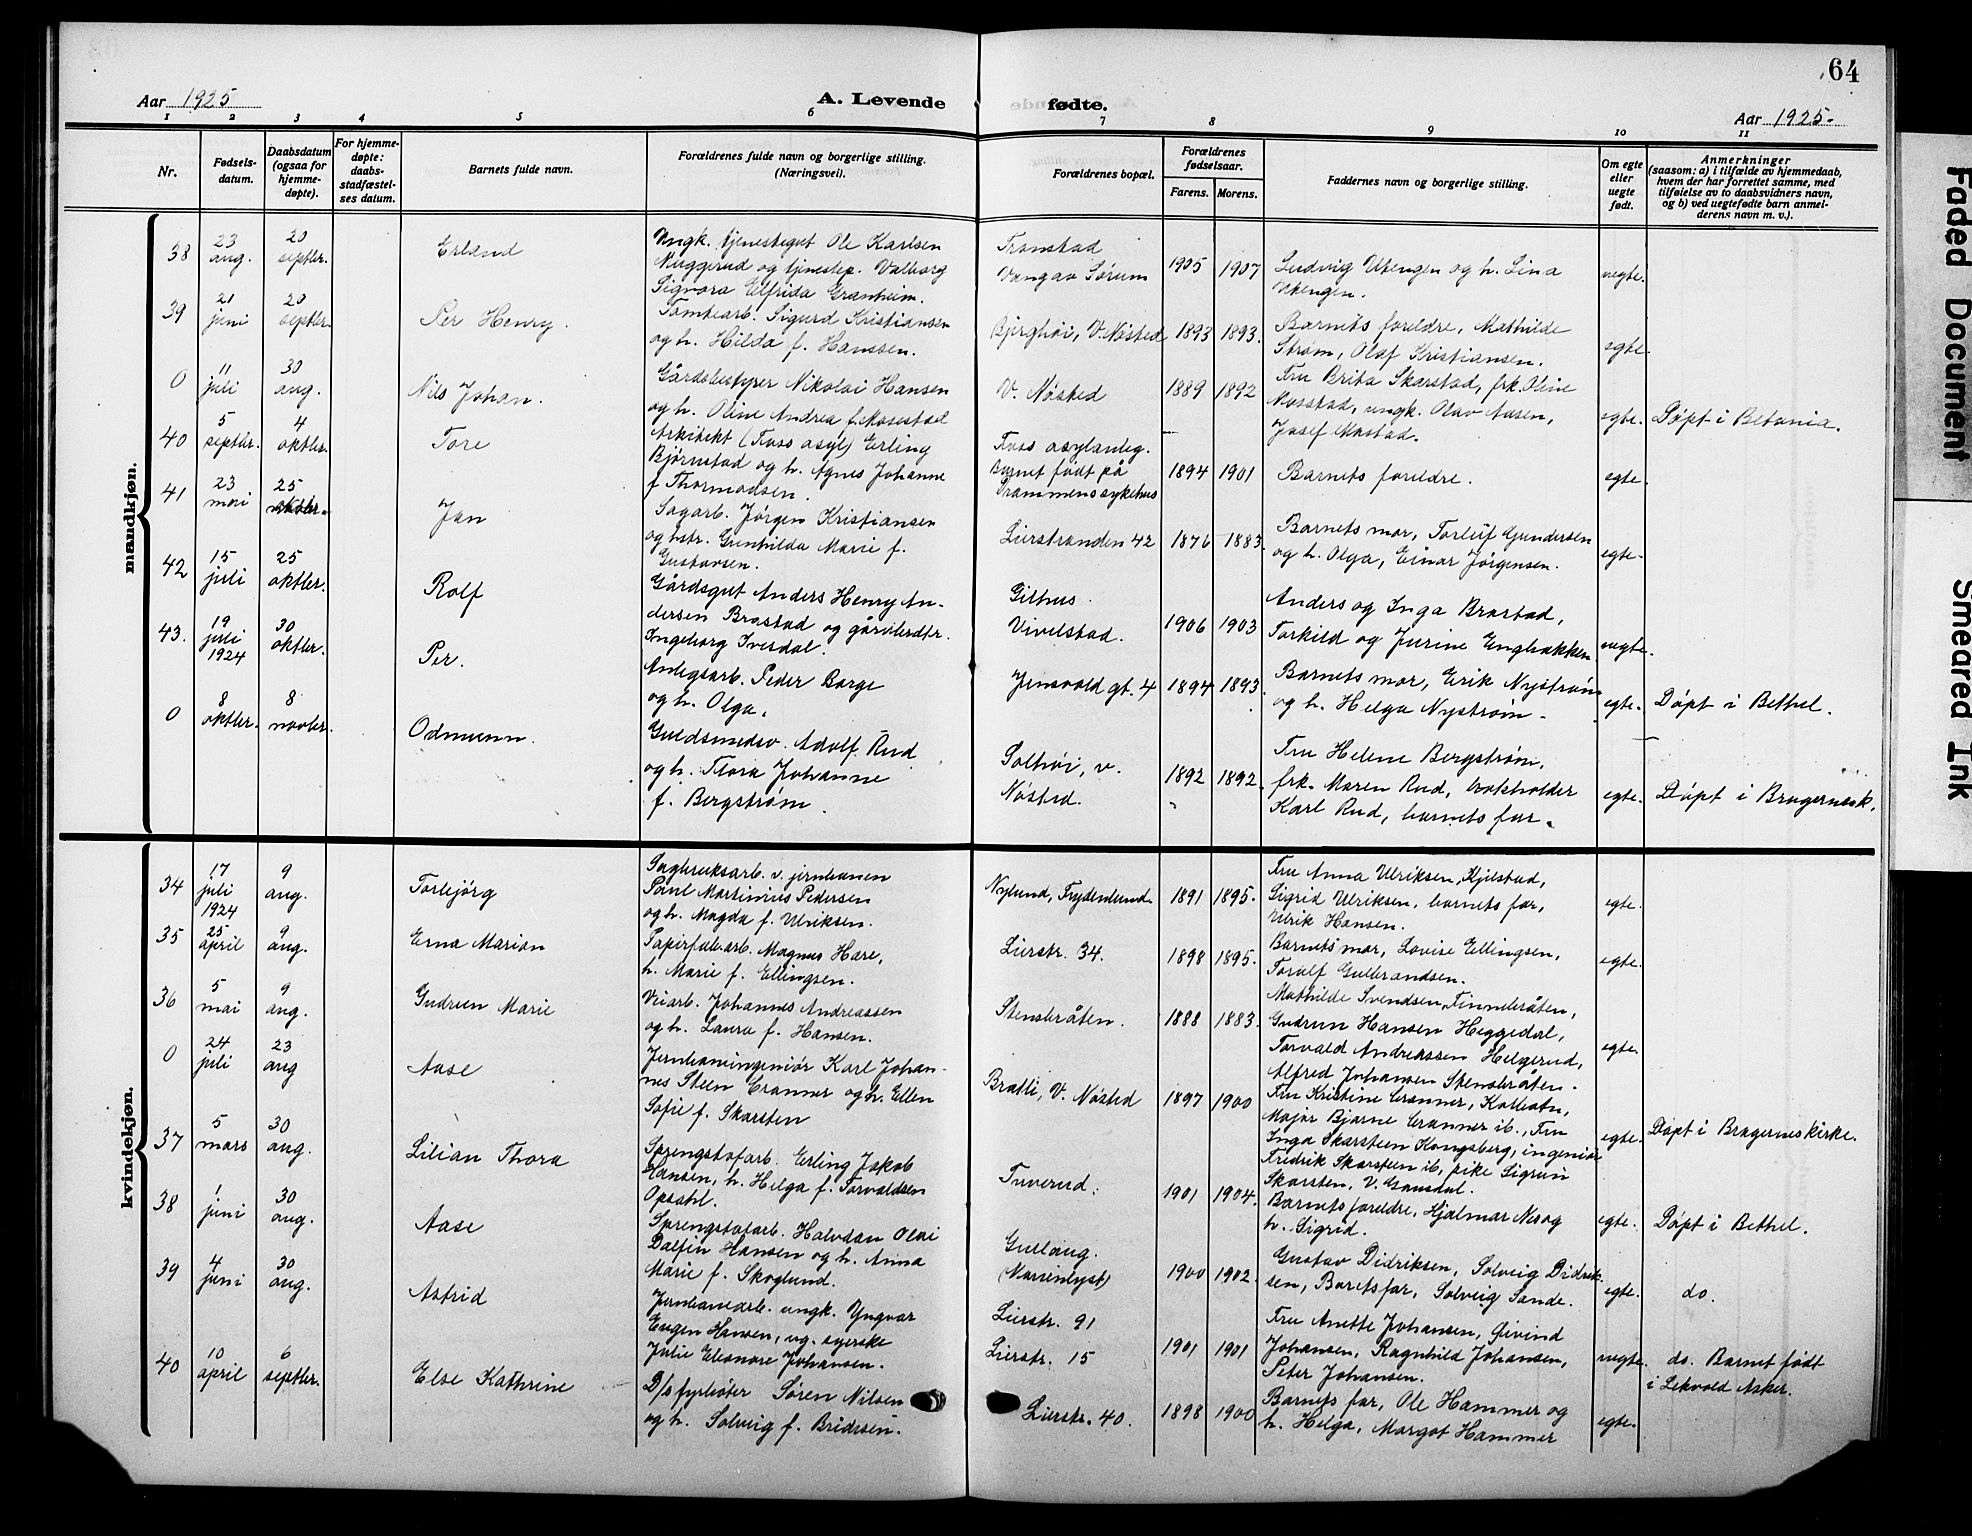 64
Aar 1925
A. Levende fødte.
Aar 1925.
1 2 3 4 5 6 7 8 9 10 11
Nr.
Fødsels-
datum.
Daabsdatum
(ogsaa for
hjemme-
døpte).
For hjemme-
døpte:
daabs-
stadfæstel-
ses datum.
Barnets fulde navn.
Forældrenes fulde navn og borgerlige stilling.
(Næringsvei).
Forældrenes bopæl.
Forældrenes
fødselsaar.
Farens. Morens.
Faddernes navn og borgerlige stilling.
Om egte
eller
uegte
født.
Anmerkninger
(saasom: a) i tilfælde av hjemmedaab,
hvem der har forrettet samme, med
tilføielse av to daabsvidners navn,
og b) ved uegtefødte barn anmel-
derens navn m. v.).
mandkjøn.
38
23 aug.
20 septbr.
Erland
Ungk. tjenestegut Ole Karlsen
Muggerud og tjenestep. Valborg
Signora Elfrida Granheim.
Transtad
Vangav Sørum
1905 1907
Ludvig Utengen og h. Lina
Utengen.
uegte.
39
21 juni
20 septbr.
Per Henry.
Tomtearb. Sigurd Kristiansen
og h. Hilda f. Hanssen.
Bjerghøi, V. Nøsted
1893 1893.
Barnets foreldre, Mathilde
Strøm, Olaf Kristiansen.
egte.
0
11 juli
30 aug.
Nils Johan.
Gårdsbestyrer Nikolai Hansen
og h. Oline Andrea f. Mosestad
V. Nøsted
1889 1892
Fru Brita Skarstad, frk. Oline
Mosstad, ungk. Olav Aasen,
Josef Mostad.
egte.
Døpt i Betania.
40
5 septbr.
4 oktbr.
Tore
Arkitekt (Foss asyl) Erling
Bjørnstad og h. Agnes Johanne
f Thormodsen.
Foss asylanleg.
Barnet født på
Drammens sykehus
1894 1901
Barnets foreldre.
egte.
41
23 mai
25 oktbr.
Jan
Sagarb. Jørgen Kristiansen
og hstr. Gunhilda Marie f.
Gustavsen.
Lierstranden 42
1876 1883.
Barnets mor, Torleif Gundersen
og h. Olga, Einar Jørgensen.
egte.
42
15 juli
25 oktbr.
Rolf
Gårdsgut Anders Henry An-
dersen Brastad og gårdbrdtr.
Ingeborg Ivesdal.
Gilhus.
Vivelstad.
1906 1903
Anders og Inga Brastad,
Torkild og Jurine Engbakken
uegte.
43.
19 juli 1924
30 oktbr.
Per.
Anlegsarb. Peder Borge
og h. Olga.
Jensvold gt. 4
1894 1893
Barnets mor, Erik Nystrøm
og h. Helga Nystrøm.
egte.
Døpt i Bethel.
0
8 oktbr.
8 novbr.
Odmunn.
Guldsmedsv. Adolf Rud
og h. Flora Johanne
f. Bergstrøm.
Solhøi, v.
Nøsted.
1892 1892.
Fru Helene Bergstrøm,
frk. Maren Rud, bokholder
Karl Rud, barnets far.
egte.
Døpt i Bragernesk.
kvindekjøn.
34
17 juli 1924
9 aug.
Torbjörg
Sagbruksarb. v. jernbanen
Paul Martinius Pedersen
og h. Magda f. Ulriksen.
Nylund, Frydenlund.
1891 1895.
Fru Anna Ulriksen, Kjelstad,
Sigrid Ulriksen, barnets far,
Ulrik Hansen.
egte.
35
25 april
9 aug.
Erna Marion
Papirfabarb. Magnus Hare,
h. Marie f. Ellingsen.
Lierstr. 34.
1898 1895.
Barnets mor, Lovise Ellingsen,
Toralf Gulbrandsen.
egte.
36
5 mai
9 aug.
Gudrun Marie
Veiarb. Johannes Andreassen
og h. Laura f. Hansen.
Stensbråten.
1888 1883.
Mathilde Svendsen, Finnebråten,
Gudrun Hansen Heggedal,
Torvald Andreassen Helgerud,
Alfred Johansen Stensbråten.
egte.
0
24 juli
23 aug
Aase
Jernbaneingeniør Karl Johan-
nes Steen Cranner og h. Ellen
Sofie f. Skarsten
Bratli, V. Nøsted
1897 1900
Fru Kristine Cranner, Kolbotn,
Major Bjarne Cranner ib., Fru
Inga Skarsteen Kongsberg, ingeniør
Fredrik Skarsteen ib, pike Sigrun
Skarsten, V. Gausdal.
egte.
Døpt i Bragerneskirke.
37
5 mars
30 aug.
Lilian Thora
Sprengstofarb. Erling Jakob
Hansen, h. Helga f. Torvaldsen
Opsahl.
Tuverud.
1901 1904.
Barnets foreldre, Hjalmar Nes og
h. Sigrid.
egte.
Døpt i Bethel.
38
1 juni
30 aug.
Aase
Sprengstofarb. Halvdan Olai
Dalfin Hansen og h. Anna
Marie f. Skoglund.
Gullaug.
(Marienlyst)
1900 1902.
Gustav Didriksen, Solveig Didrik-
sen, Baretsfar, Solveig Sande.
egte.
do.
39
4 juni
30 aug.
Astrid
Jernbanearb. ungk. Yngvar
Eugen Hansen, ug. syerske
Julie Eleonore Johansen.
Lierstr. 91
Lierstr. 15
1901 1901
Fru Anette Johansen, Øivind
Johansen, Ragnhild Johansen,
Peter Johansen.
uegte.
do. Barnet født
i Lekvold Asker.
40
10 april
6 septbr.
Else Kathrine
D/s fyrbøter Søren Nilsen
og h. Solveig f. Bridesen.
Lierstr. 40.
1898 1900
Barnets far, Ole Hammer og
h. Helga, Margot Hammer
egte.
Faded Document
Smeared Ink